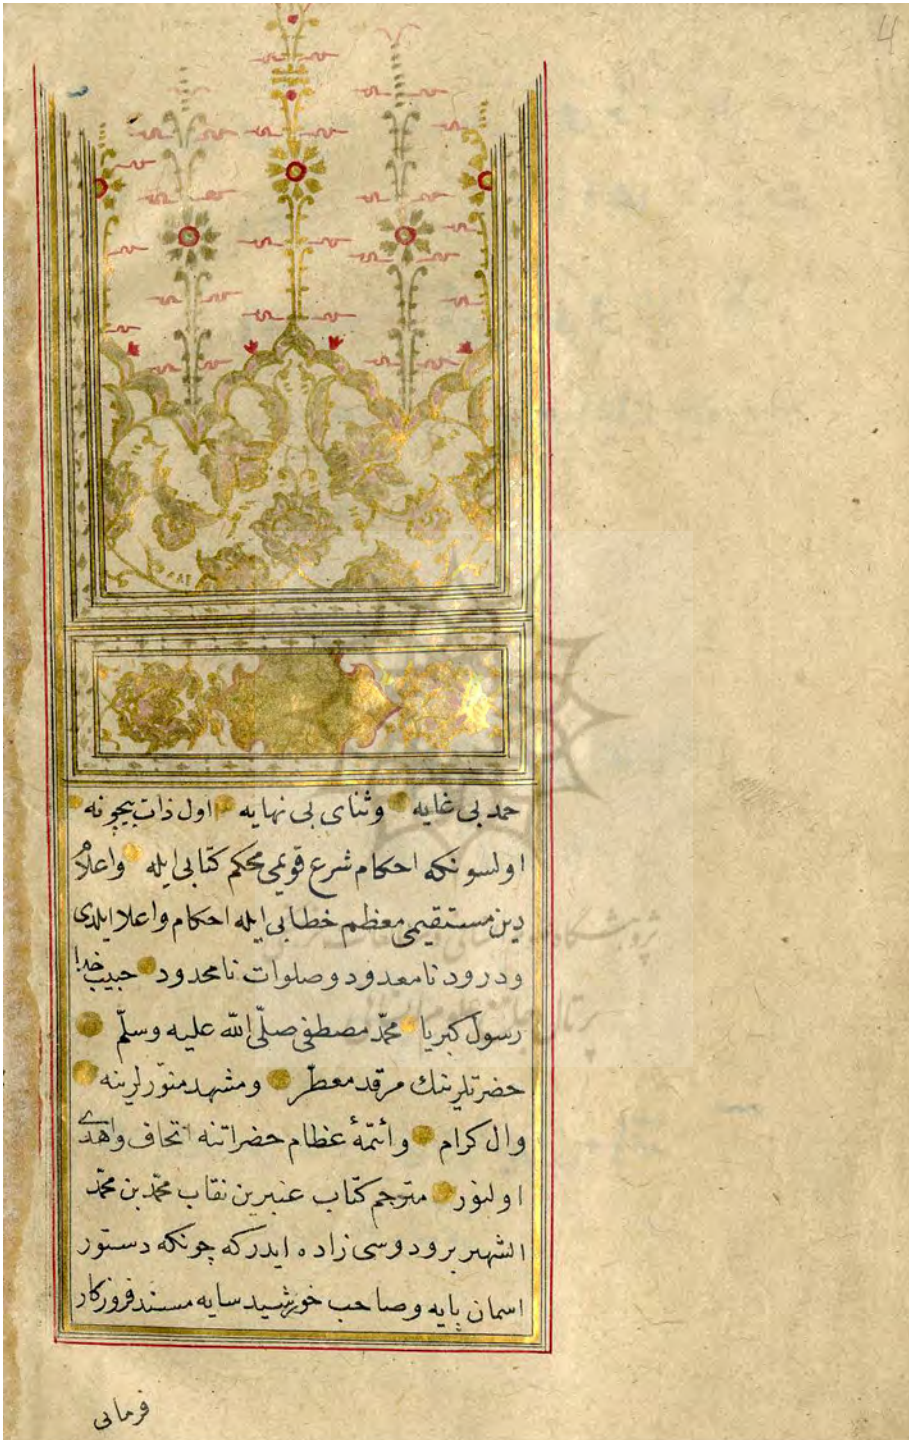 4
حمد بی غایه وثنای بی نهایه اول ذات بیچونه
اولسونکه احکام شرع قویمی محکم کتابی ایله واعلام
دین مستقیمی معظم خطابی ایله احکام واعلا ایلدی
ودرود نامعدود وصلوات نامحدود حبیب خدا
رسول کبریا محمّد مصطفی صلّی الله علیه وسلّم
حضرتلرینك مرقد معطّر ومشهد منوّرلرینه
وال کرام وائمّهٔ عظام حضراتنه اتحاف واهدی
اولنور مترجم کتاب عنبرین نقاب محمّد بن محمّد
الشهیر برودوسی زاده ایدرکه چونکه دستور
اسمان پایه وصاحب خورشید سایه مسند فروزکار
فرمانی
پژوهشگاه علوم انسانی و مطالعات فرهنگی
پرتال جامع علوم انسانی